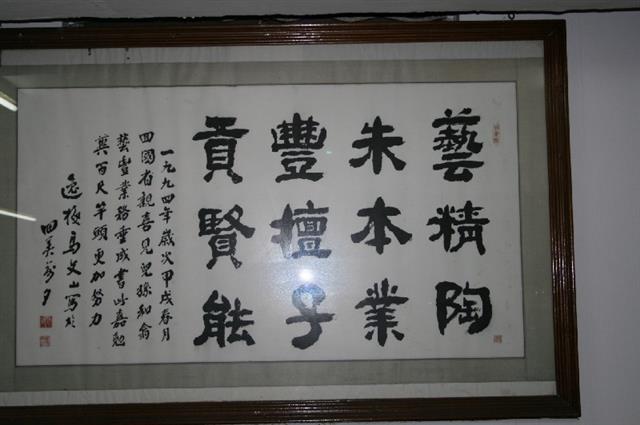 藝精陶
朱本業
豐檀子
貢賢能
一九九四年歲次甲戌春月
回國省親喜見兒孫和翕
藝豐業務垂成書以嘉勉
冀百尺竿頭更加努力
馬文山寫於
回美前夕